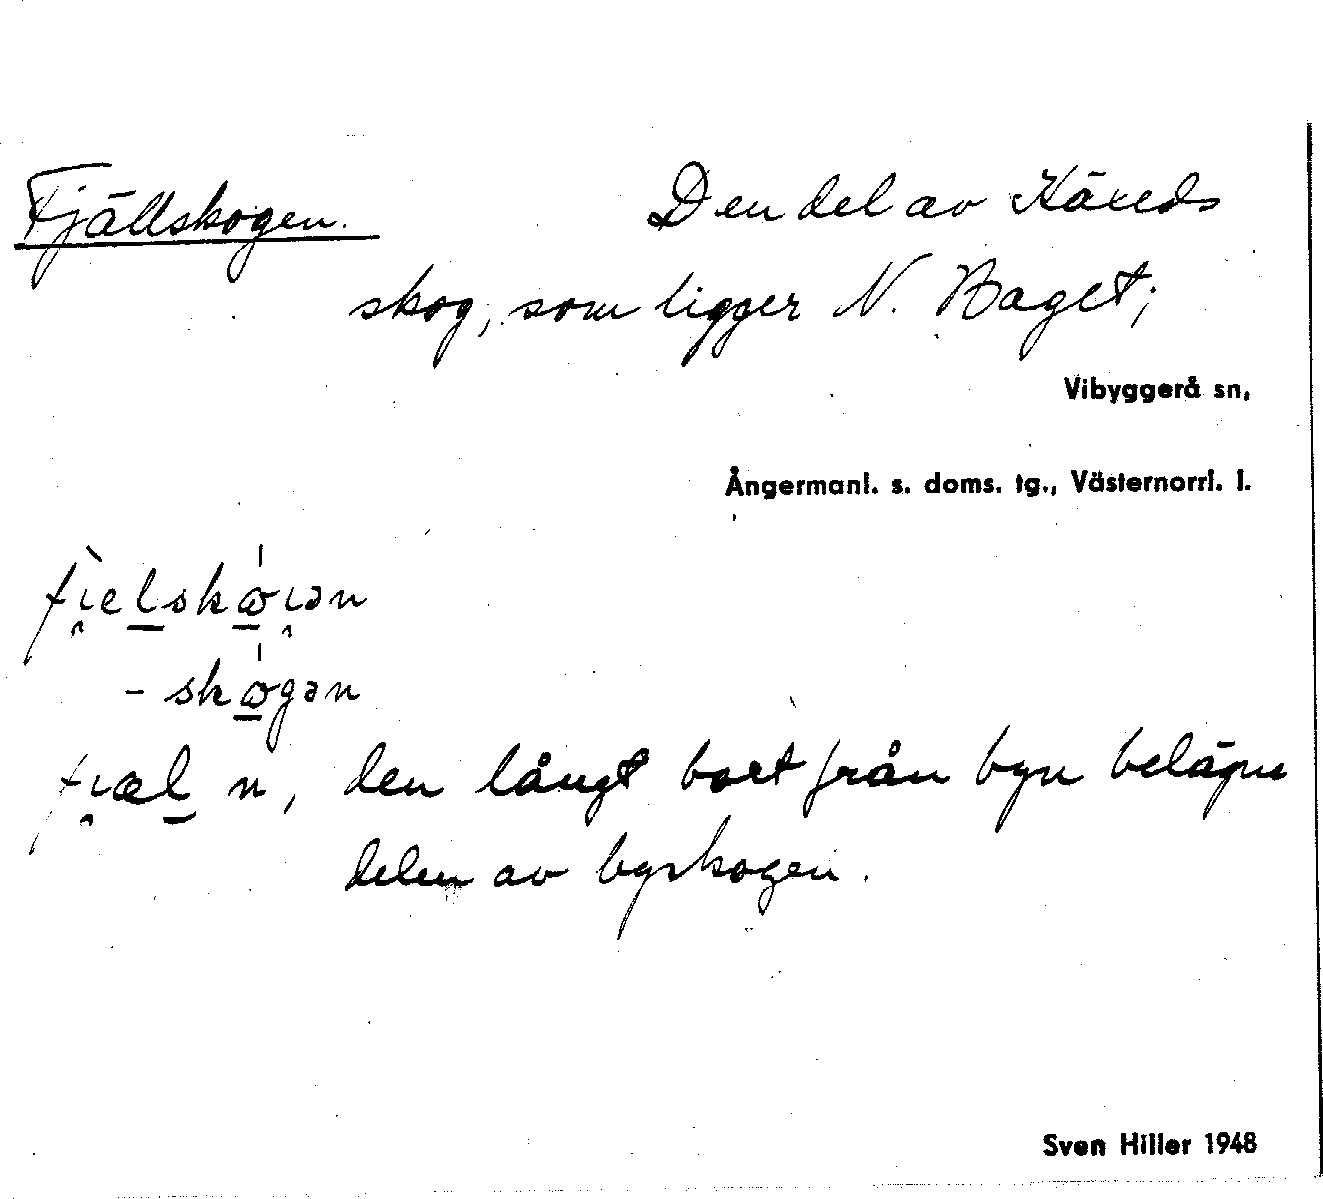 Fjällskogen. Den del av Käxeds
skog, som ligger N. Baget;
Vibyggerå sn,
Ångermanl. s. doms. tg., Västernorrl. l.
- skωgən
n, den långt bort från byn belägna
delen av byskogen.
Sven Hiller 1948